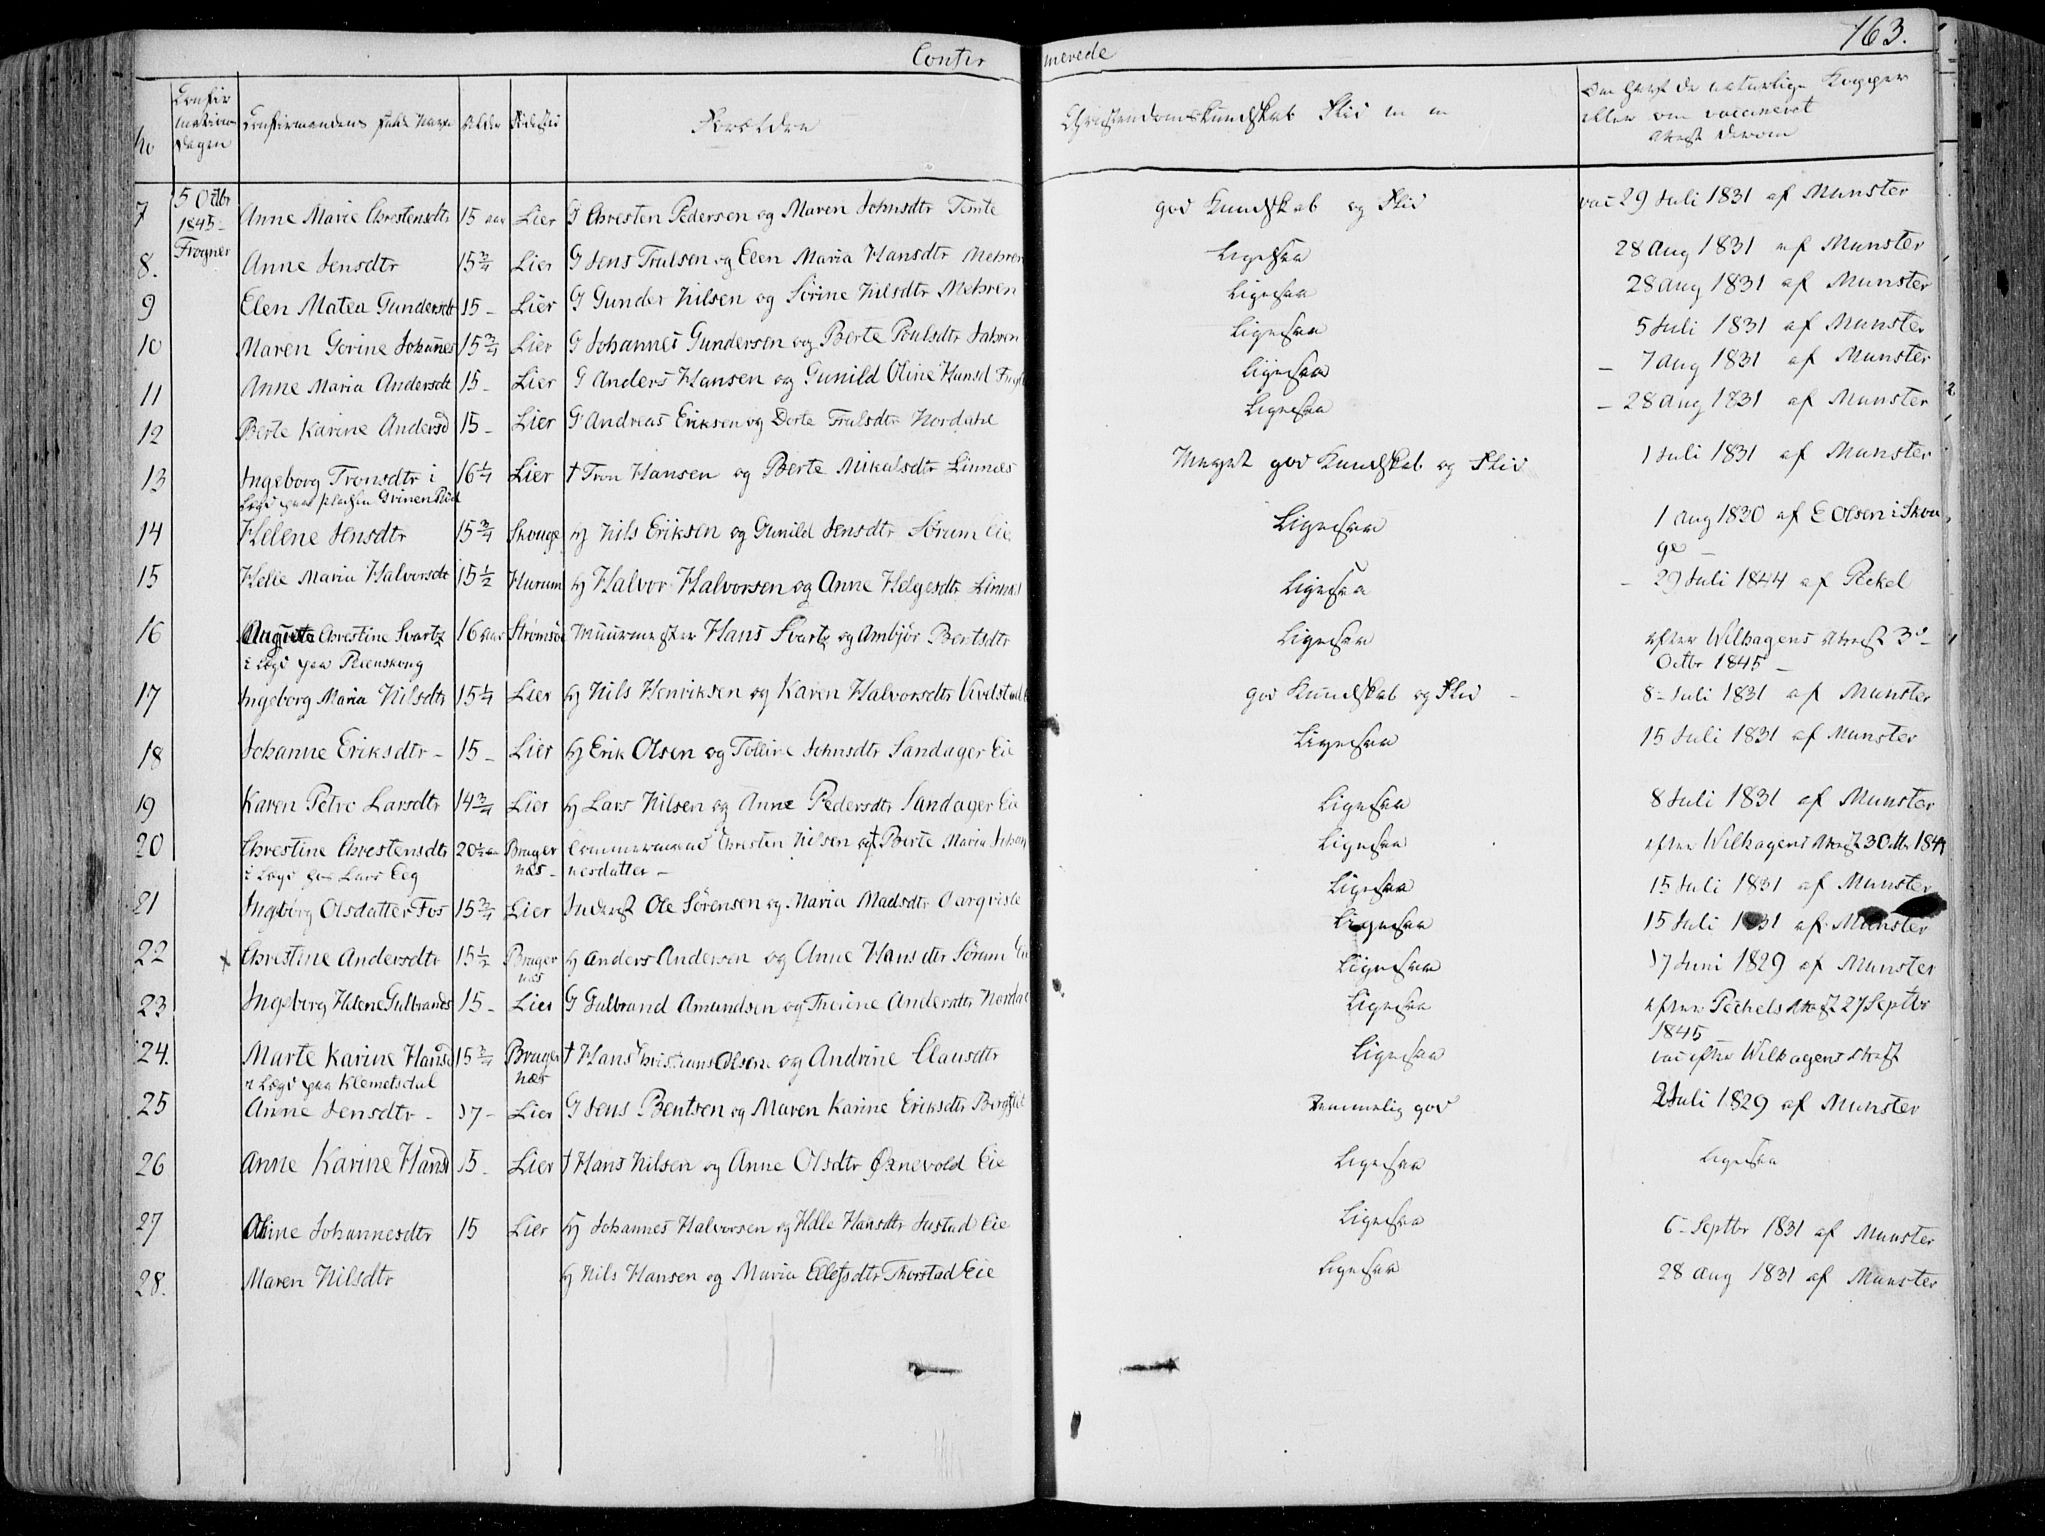 163.
Confirmerede
No
Confirmations Dagen
Confirmandens fulde Navn
Alder
Fødested
Forældre
Christendomskundskab Flid m m
Om havt de naturlige Kopper
eller om vaccineret
Attest derom
7 5 Octbr 1845 - Frogner Anne Marie Chrestensdtr 15 aar Lier G Chresten Pedersen og Maren Johnsdtr Tomte god Kundskab og Flid vac 29 Juli 1831 af Munster
8. Anne Jensdtr 15 3/4 Lier G Jens Trulsen og Elen Maria Hansdtr Mehren Ligesaa 28 Aug 1831 af Munster
9 Elen Matea Gundersdtr 15 - Lier G Gunder Nilsen og Sørine Nilsdtr Mehren Ligesaa 28 Aug 1831 af Munster
10 Maren Gorine Johannes 15 3/4 Lier G Johannes Gundersen og Berte Poulsdtr Jahren Ligesaa 5 Juli 1831 af Munster
11 Anne Maria Andersdt 15 - Lier G Anders Hansen og Gunild Oline Hansd Ligesaa - 7 Aug 1831 af Munster
12 Berte Karine Andersd 15 - Lier G Andreas Eriksen og Dorte Trulsdtr Nordahl Ligesaa - 28 Aug 1831 af Munster
13 Ingeborg Tronsdtr i 16 1/4 Lier † Tron Hansen og Berte Mikalsdtr Linnes Meget god Kundskab og Flid 1 Juli 1831 af Munster
Lægd paa pladsen Grinen
14 Helene Jensdtr 15 3/4 Skouge Hj Nils Eriksen og Gunild Jensdtr Sørum Eie Ligesaa 1 Aug 1830 af E Olsen i Skou
ge -
15 Helle Maria Halvorsdt 15 1/2 Hurum Hj Halvor Halvorsen og Anne Helgesdtr Linnes Ligesaa - 29 Juli 1844 af Peckel
16 Auguste Chrestine Svartz 16 aar Strømsøe Muurmester Hans Svartz og Ambjør Berntsdtr Ligesaa efter Wilhagens Attest 3d -
i Lægd paa Reenskoug Octbr 1845 -
17 Ingeborg Maria Nilsdtr 15 1/4 Lier Hj Nils Henriksen og Karen Halvorsdtr god Kundskab og Flid - 8 - Juli 1831 af Munster
18 Johanne Eriksdtr - 15 - Lier Hj Erik Olsen og Tolline Johnsdtr Sandager Eie Ligesaa 15 Juli 1831 af Munster
19 Karen Petre Larsdtr 14 3/4 Lier Hj Lars Nilsen og Anne Pedersdtr Sandager Eie Ligesaa 8 Juli 1831 af Munster
20 Chrestine Chrestensdtr 20 1/2 aar Brager Chresten Nilsen og † Berte Maria Johan Ligesaa efter Wilhagens Attest 3 Octbr 184
i Lægd hos Lars Eeg næs - nesdatter -
21 Ingbørg Olsdatter Fos 15 3/4 Lier Inderst Ole Sørensen og Maria Madsdtr Aarqvisle Ligesaa 15 Juli 1831 af Munster
Ligesaa 15 Juli 1831 af Munster
22 x Chrestine Andersdtr 15 1/2 Brager Hj Anders Andersen og Anne Hansdtr Sørum Eie Ligesaa 17 Juni 1829 af Munster
næs
23 Ingeborg Helene Gulbrands 15 - Lier G Gulbrand Amundsen og Therine Andersdtr Nordal Ligesaa efter Pechels Attest 27 Septbr
1845
24. Marte Karine Hansd 15 3/4 Brager † Hans Christians Olsen og Andrine Clausdtr Ligesaa vac efter Wilhagens Attest
i Lægd paa Klemetsdal næs
25 Anne Jensdtr - 17 - Lier G Jens Bentsen og Maren Karine Eriksdtr Temmelig god 2 Juli 1829 af Munster
26 Anne Karine Hansd 15 - Lier † Hans Nilsen og Anne Olsdtr Ørnevold Eie Ligesaa Ligesaa
27 Oline Johannesdtr 15 Lier Hj Johannes Halvorsen og Helle Hansdtr Justad Eie Ligesaa 6 - Septbr 1831 af Munster
28. Maren Nilsdtr Hj Nils Hansen og Maria Ellefsdtr Thorstad Eie Ligesaa 28 Aug 1831 af Munster